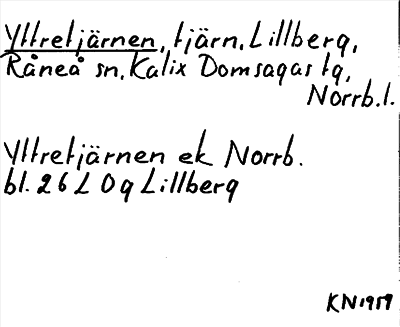 Yttretjärnen, tjärn, Lillberg,
Råneå sn, Kalix Domsagas tg,
Norrb. l.
Yttretjärnen ek Norrb.
bl. 26 L 0g Lillberg
KN 1959